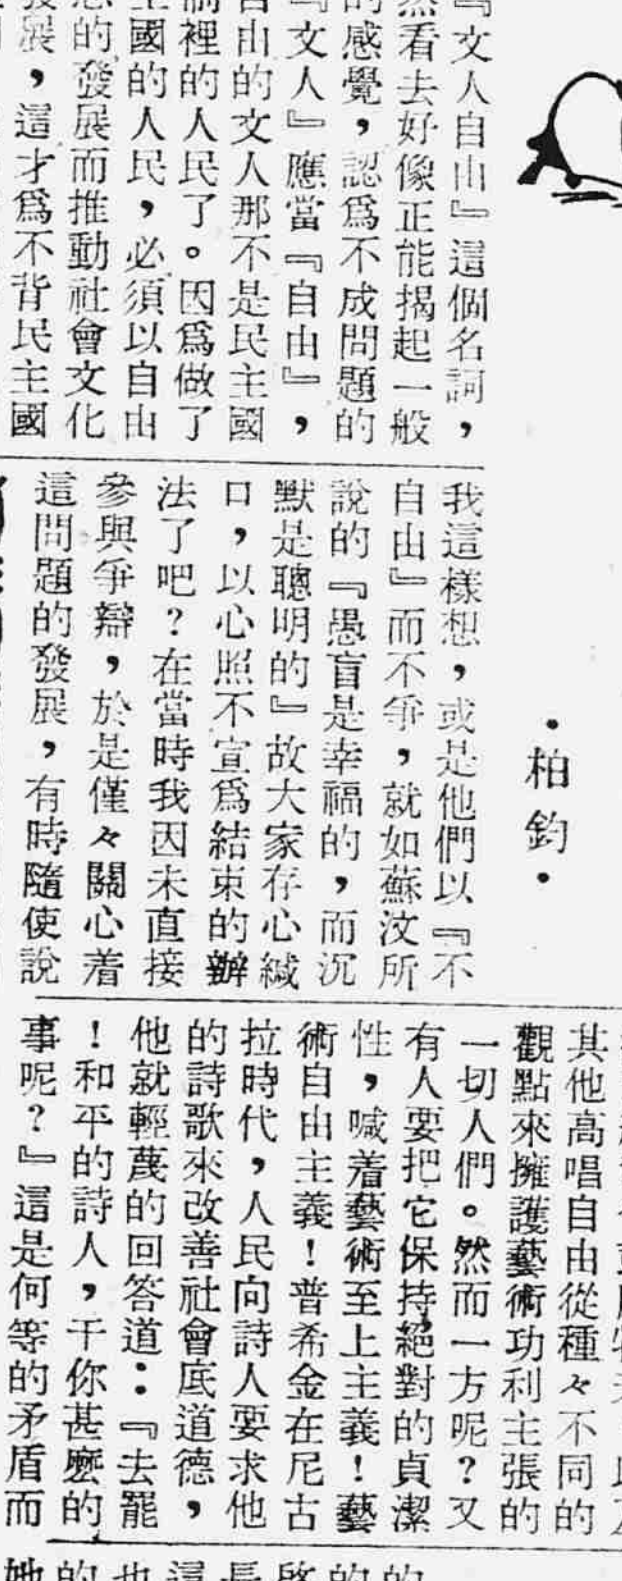 『文人自由』這個名詞，
然看去好像正能揭起一般
的感覺，認爲不成問題的
『文人』應當『自由』，
自由的文人那不是民主國
裡的人民了。因爲做了
國的人民，必須以自由
的發展而推動社會文化
展，這才爲不背民主國
・柏鈞・
我這樣想，或是他們以『不
自由』而不爭，就如蘇汶所
說的『愚盲是幸福的，而沉
默是聰明的』故大家存心緘
口，以心照不宣爲結束的辦
法了吧？在當時我因未直接
參與爭辯，於是僅々關心着
這問題的發展，有時隨使說
其他高唱自由從種々不同的
觀點來擁護藝術功利主張的
一切人們。然而一方呢？又
有人要把它保持絕對的貞潔
性，喊着藝術至上主義！藝
術自由主義！普希金在尼古
拉時代，人民向詩人要求他
的詩歌來改善社會底道德，
他就輕蔑的回答道：『去罷
！和平的詩人，干你甚麼的
事呢？』這是何等的矛盾而